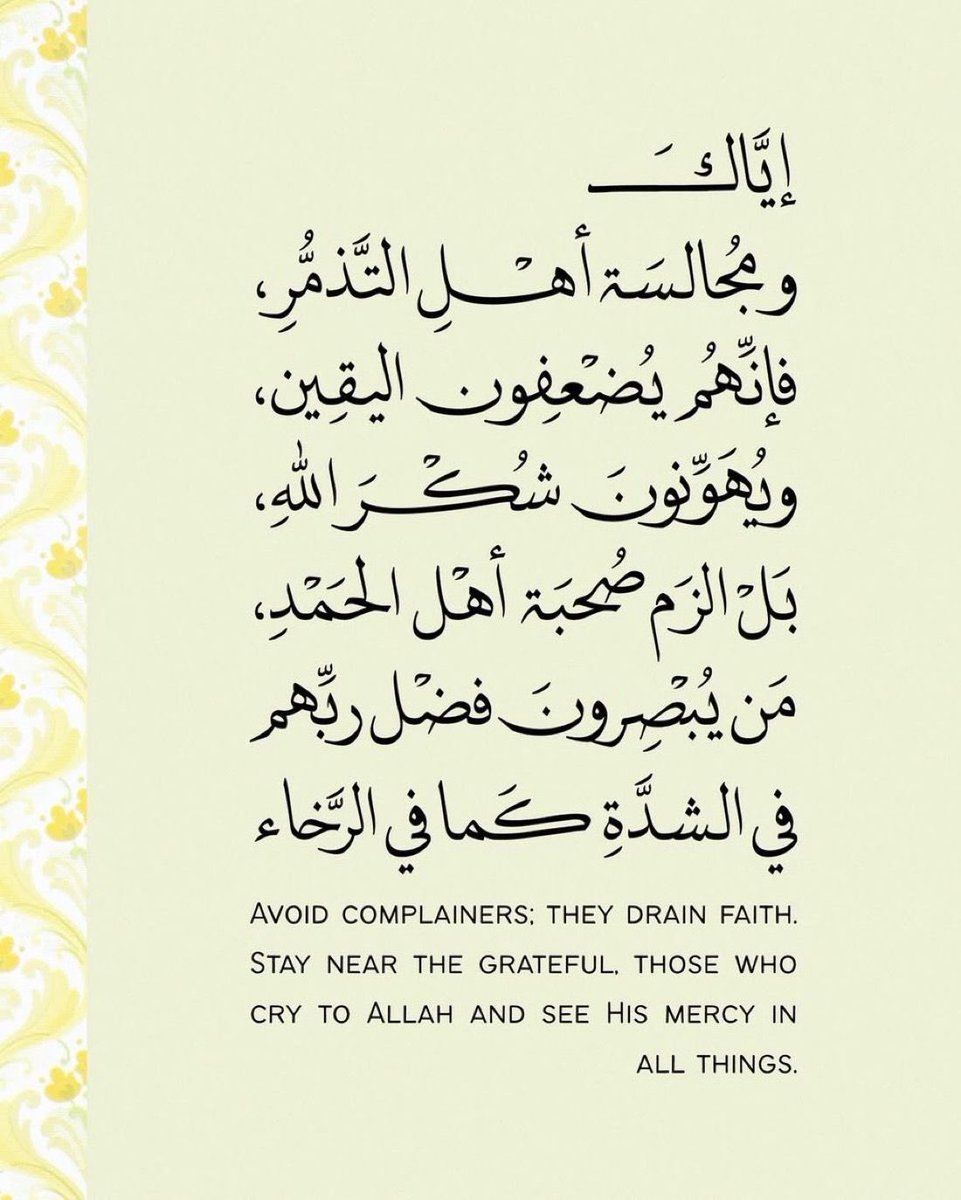 إيَّاكَ
ومُجالسَة أهْلِ التَّذمُّرِ،
فإنَّهُم يُضْعِفون اليقِين،
ويُهَوِّنونَ شُكْرَ اللهِ،
بَلْ الزَم صُحبَة أهْل الحَمْدِ،
مَن يُبْصِرونَ فضْل ربِّهم
في الشدَّةِ كَما في الرَّخاء
Avoid complainers; they drain faith.
Stay near the grateful, those who
cry to Allah and see His mercy in
all things.